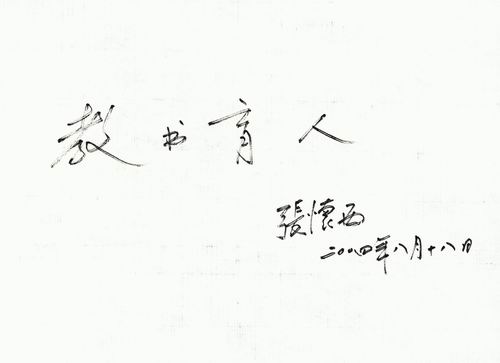 教书育人
張懷西
二〇〇四年八月十八日